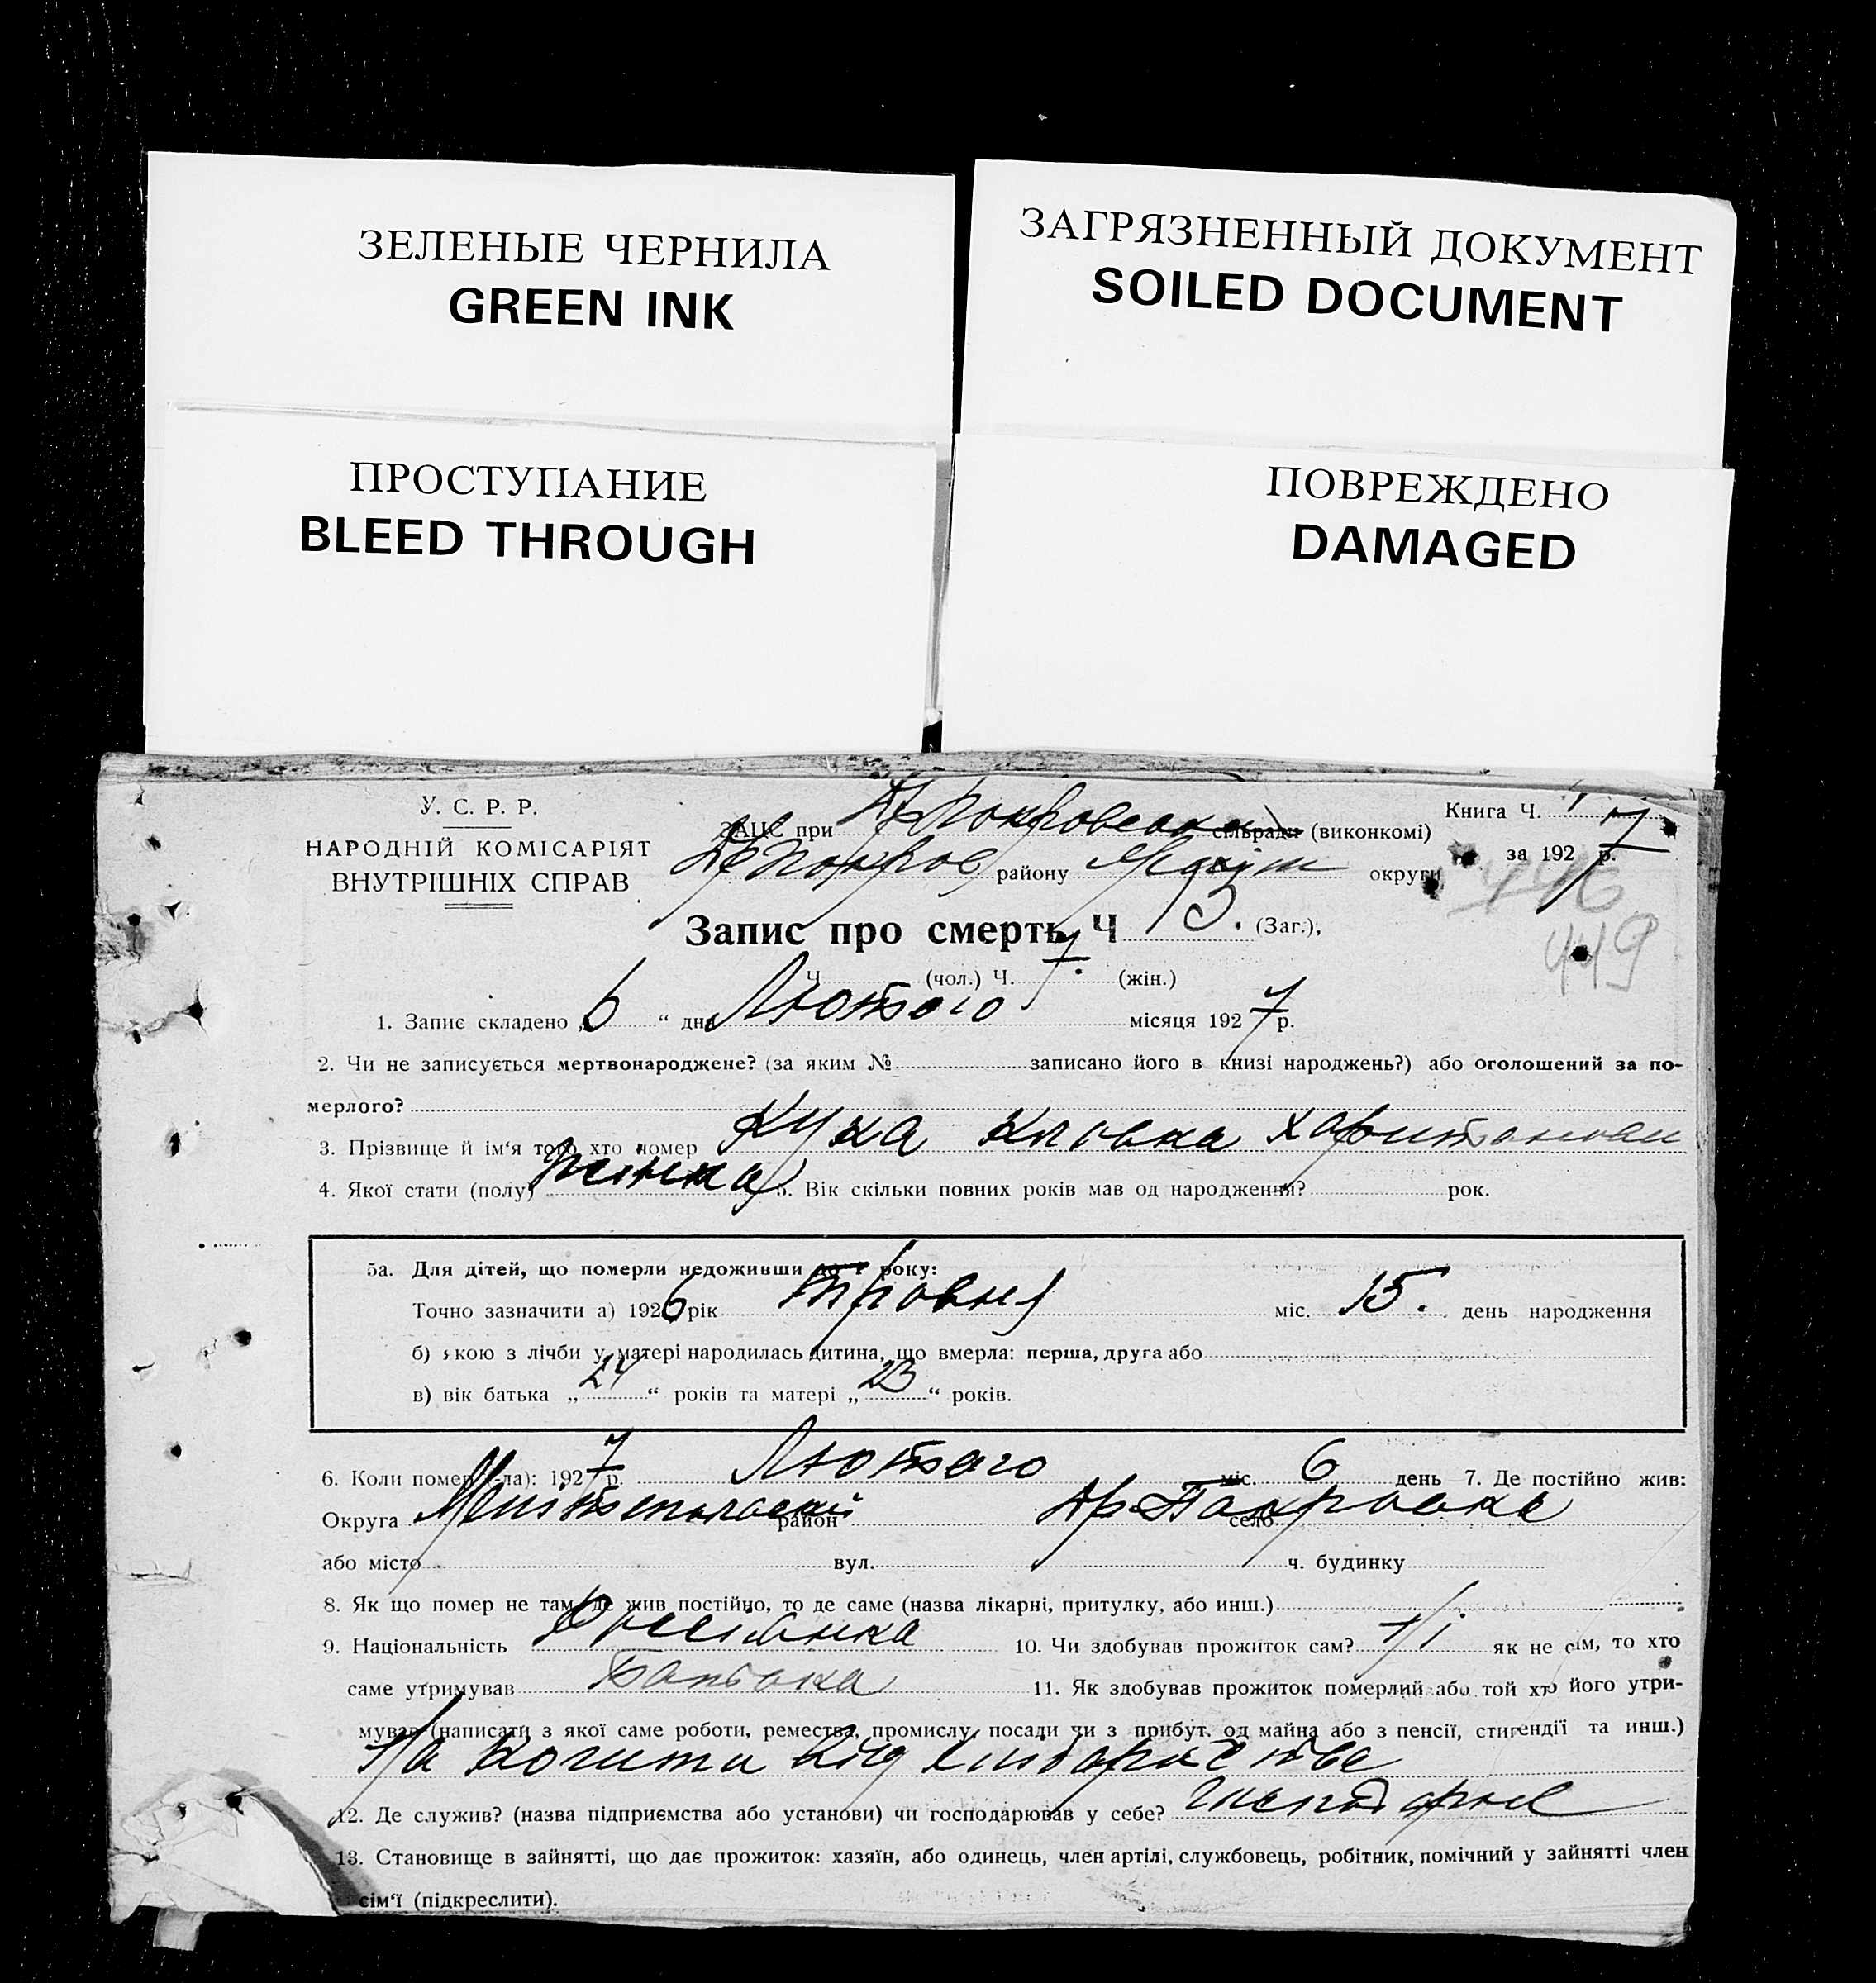 ЗЕЛЕНЫЕ ЧЕРНИЛА
GREEN INK
ЗАГРЯЗНЕННЫЙ ДОКУМЕНТ
SOILED DOCUMENT
ПРОСТУПАНИЕ
BLEED THROUGH
ПОВРЕЖДЕНО
DAMAGED
У. С. Р. Р.
НАРОДНІЙ КОМІСАРІЯТ
ВНУТРІШНІХ СПРАВ
ЗАЦС при сільради (виконкомі)
району округи
Книга Ч.
за 1927 р.
446
449
Запис про смерть Ч (Заг.),
Ч. (чол.) Ч. 7. (жін.)
1. Запис складено „6“ дня Лютого місяця 1927 р.
2. Чи не записується мертвонароджене? (за яким № записано його в книзі народжень?) або оголошений за по-
мерлого?
3. Прізвище й ім'я того хто помер
4. Якої стати (полу) 5. Вік скільки повних років мав од народження? рок.
5а. Для дітей, що померли недоживши до 1 року:
Точно зазначити а) 1926 рік травня міс. 15. день народження
б) якою з лічби у матері народилась дитина, що вмерла: перша, друга або
в) вік батька „24“ років та матері „23“ років.
6. Коли помер (-ла): 1927 р. Лютого міс. 6 день 7. Де постійно жив:
Округа район село
або місто вул. ч. будинку
8. Як що помер не там, де жив постійно, то де саме (назва лікарні, притулку, або инш.)
9. Національність 10. Чи здобував прожиток сам? ні як не сам, то хто
саме утримував Батька 11. Як здобував прожиток померлий або той хто його утри-
мував (написати з якої саме роботи, ремества, промислу, посади чи з прибут. од майна або з пенсії, стипендії та инш.)
12. Де служив? (назва підприємства або установи) чи господарював у себе?
13. Становище в зайнятті, що дає прожиток: хазяїн, або одинець, член артілі, службовець, робітник, помічний у зайнятті член
сім'ї (підкреслити).